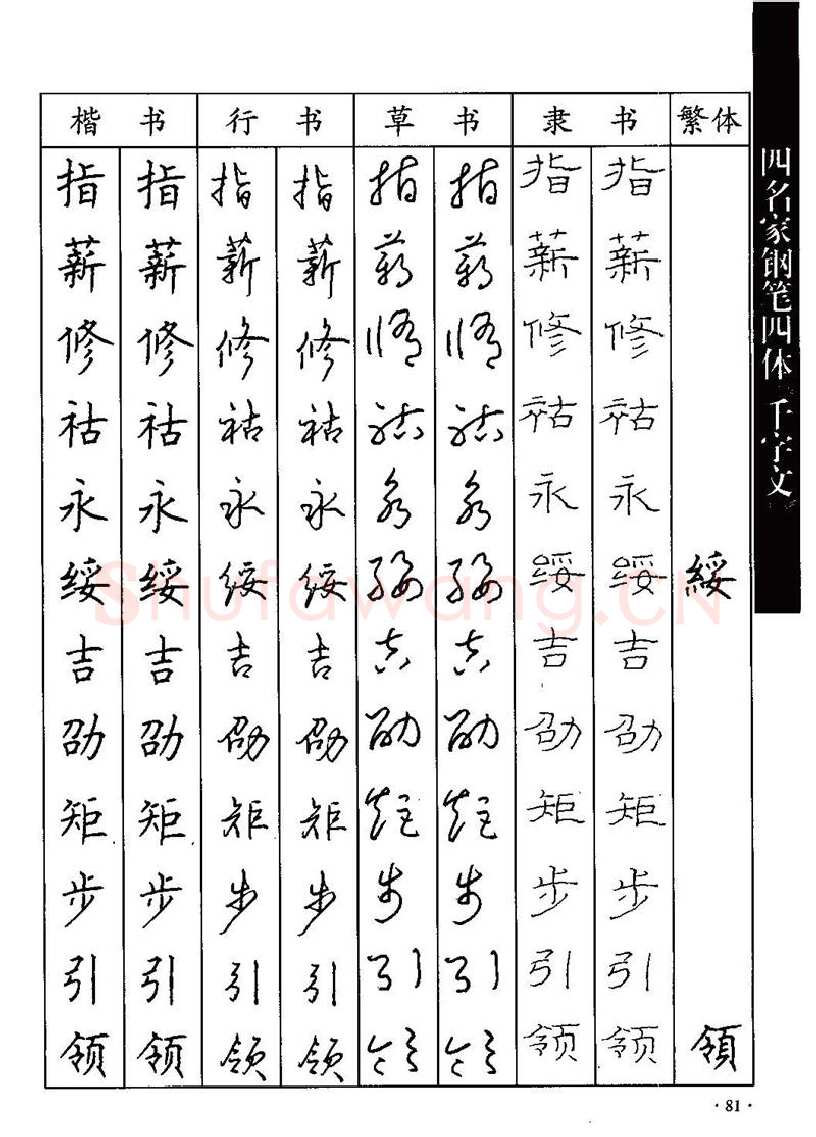 楷书 行书 草书 隶书 繁体
指 指 指 指 指 指 指 指
薪 薪 薪 薪 薪 薪 薪 薪
修 修 修 修 修 修 修 修
祜 祜 祜 祜 祜 祜 祜 祜
永 永 永 永 永 永 永 永
绥 绥 绥 绥 绥 绥 绥 绥 綏
吉 吉 吉 吉 吉 吉 吉 吉
劭 劭 劭 劭 劭 劭 劭 劭
矩 矩 矩 矩 矩 矩 矩 矩
步 步 步 步 步 步 步 步
引 引 引 引 引 引 引 引
领 领 领 领 领 领 领 领 領
四名家钢笔四体千字文
Shufawang.CN
·81·